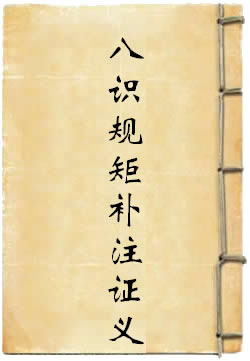 八识规矩补注证义